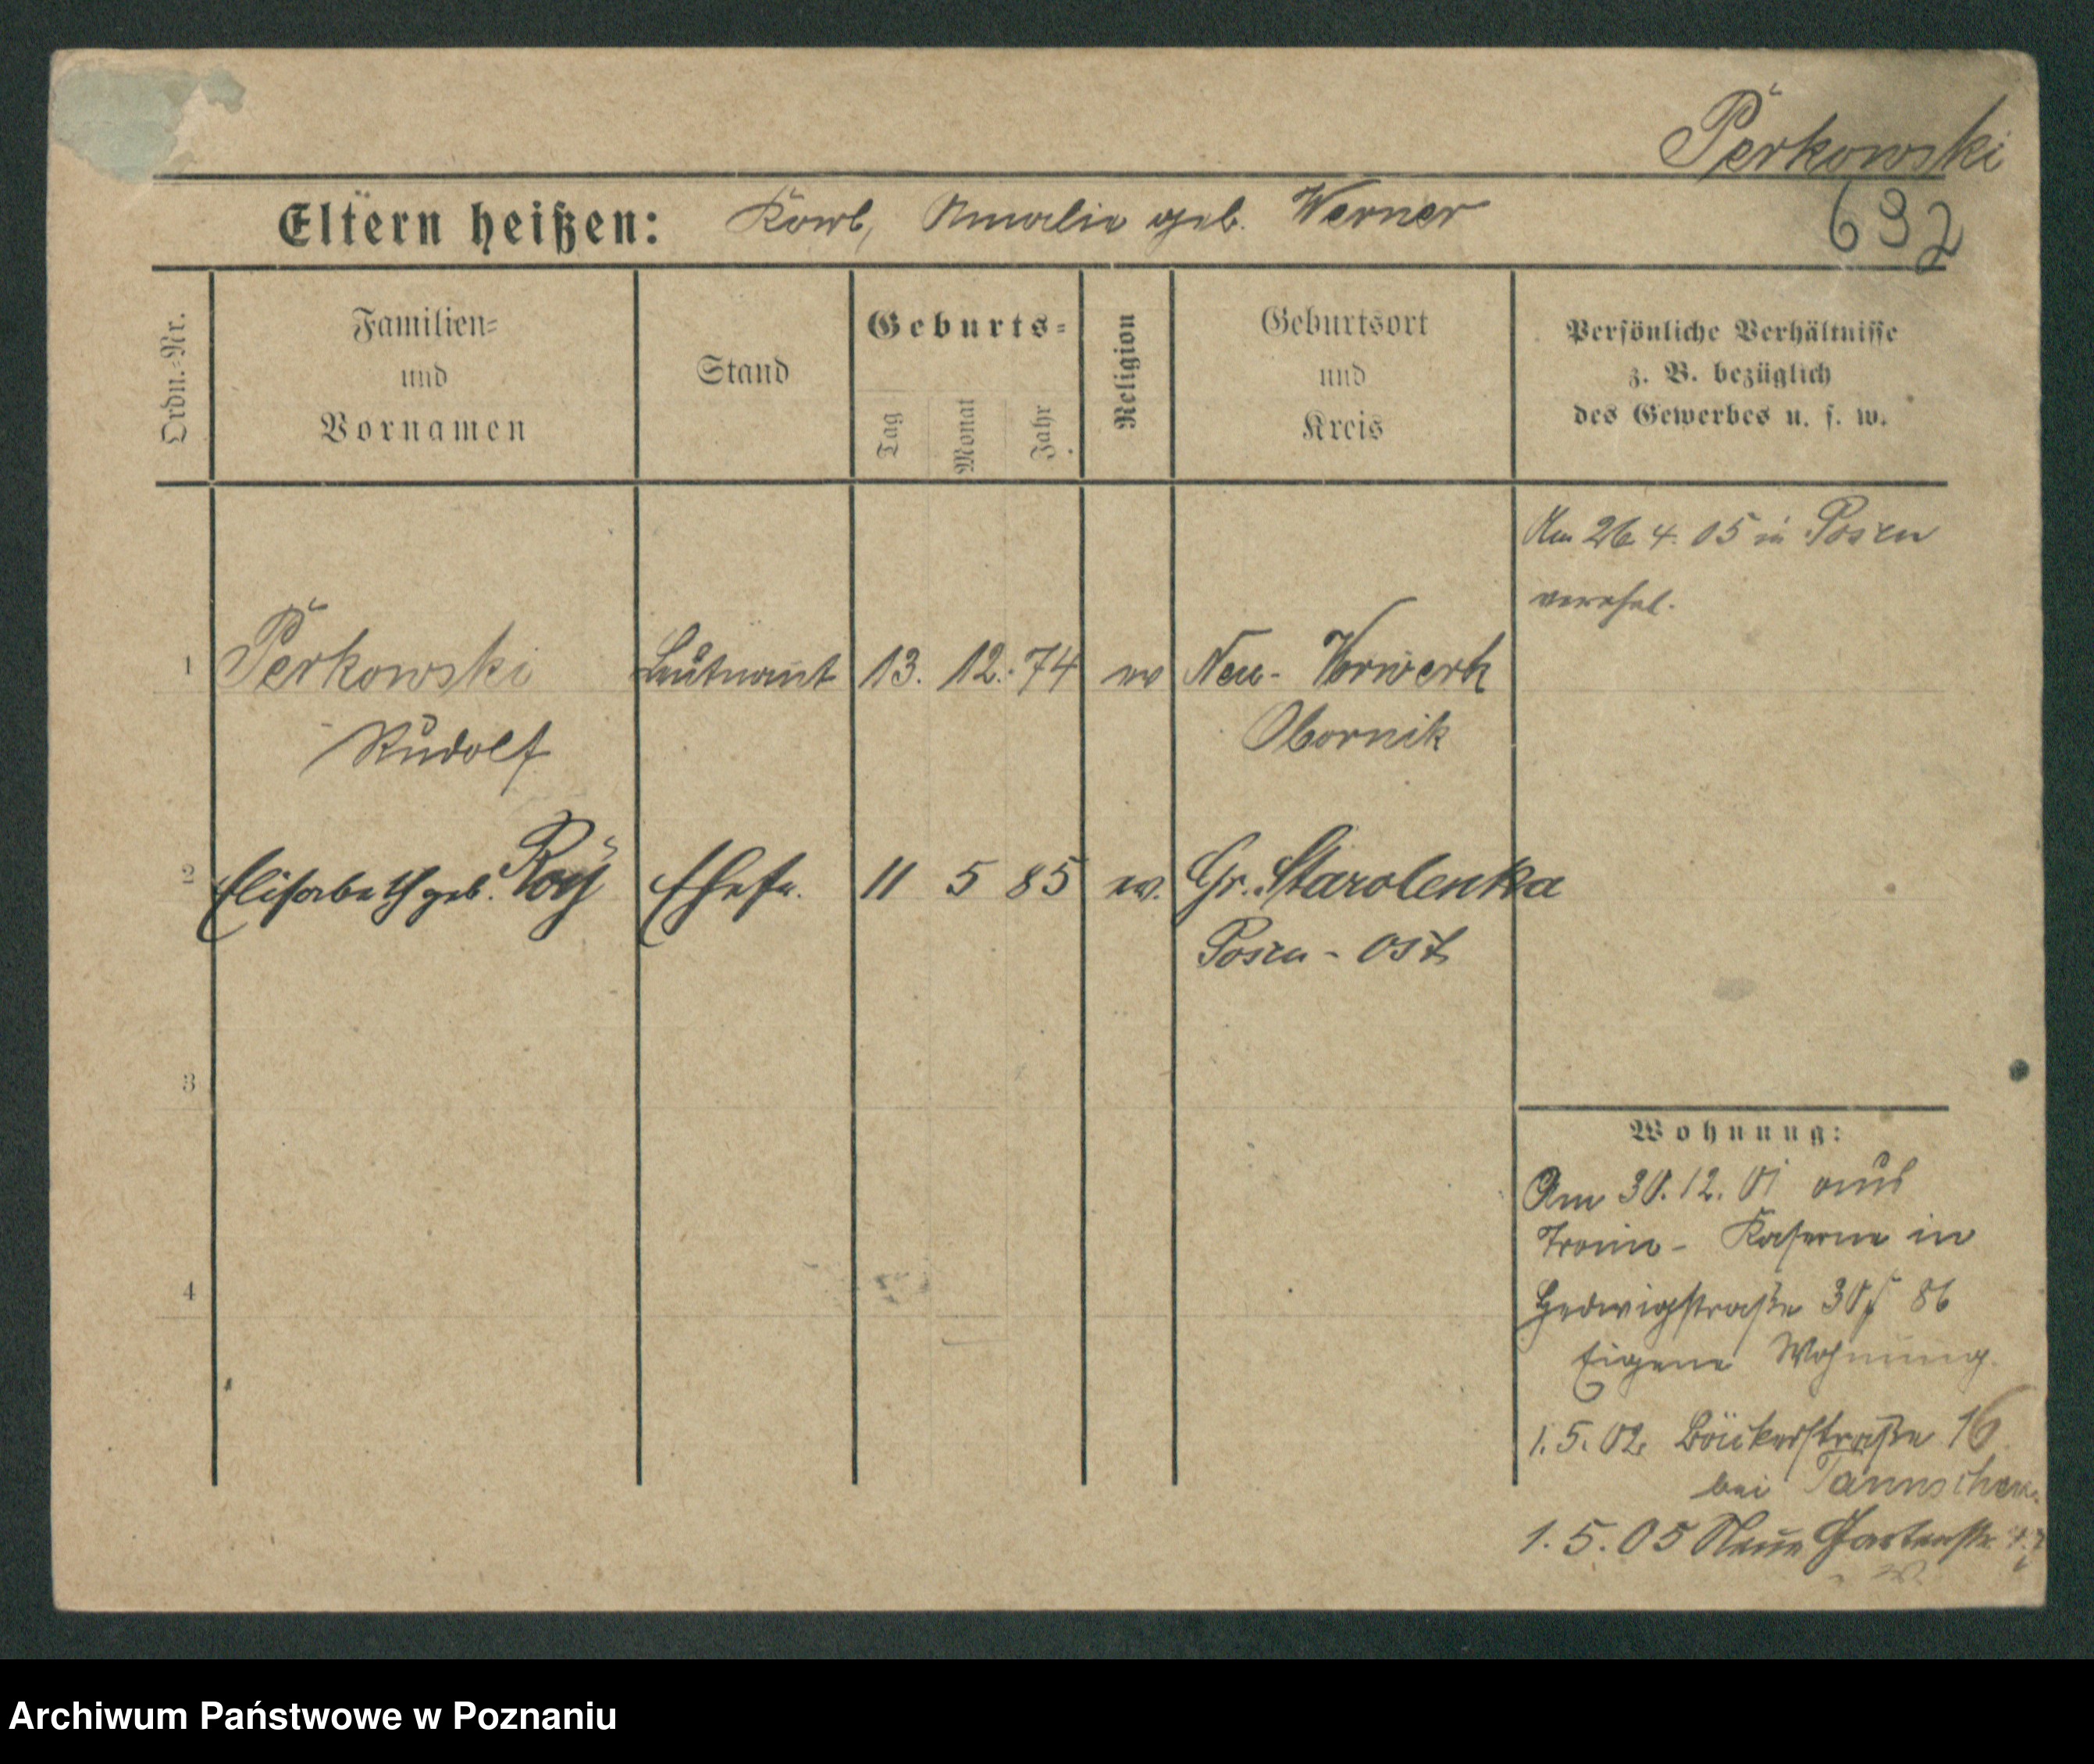 Perkowski
632
Eltern heißen: Karl, Amalie geb. Werner
Ordn.=Nr.
Familien=
und
Vornamen
Stand
Geburts=
Tag
Monat
Jahr
Religion
Geburtsort
und
Kreis
Persönliche Verhältnisse
z. B. bezüglich
des Gewerbes u. s. w.
Am 26. 4. 05 in Posen
verehel.
1 Perkowski Leutnant 13. 12. 74 ev Neu-Vorwerk
Rudolf Obornik
2 Elisabeth geb. Roy Ehefr. 11 5 85 ev. Gr. Starolenka
Posen-Ost
3
4
Wohnung:
Am 30. 12. 01 aus
Train-Kaserne in
Hedwigstraße 86
Eigene Wohnung
1. 5. 02 Bäckerstraße 16
bei
1. 5. 05 Neue Gartenstr.
Archiwum Państwowe w Poznaniu